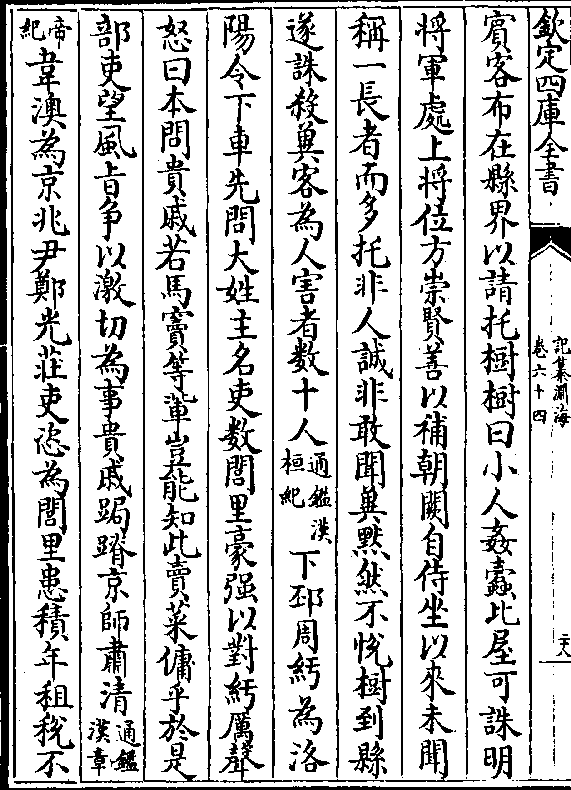 欽定四庫全書
記纂淵海
卷六十四
二八
賓客布在縣界以請托樹樹曰小人姦蠹比屋可誅明
將軍處上將位方崇賢善以補朝闕自侍坐以來未聞
稱一長者而多托非人誠非敢聞兾黙然不悅樹到縣
遂誅殺兾客為人害者數十人通鑑漢桓紀下邳周紆為洛
陽令下車先問大姓主名吏數閭里豪强以對紆厲聲
怒曰本問貴戚若馬竇等軰豈能知此賣菜傭乎於是
部吏望風㫖争以激切為事貴戚跼蹐京師肅清通鑑漢章
帝紀韋澳為京兆尹鄭光莊吏恣為閭里患積年租稅不